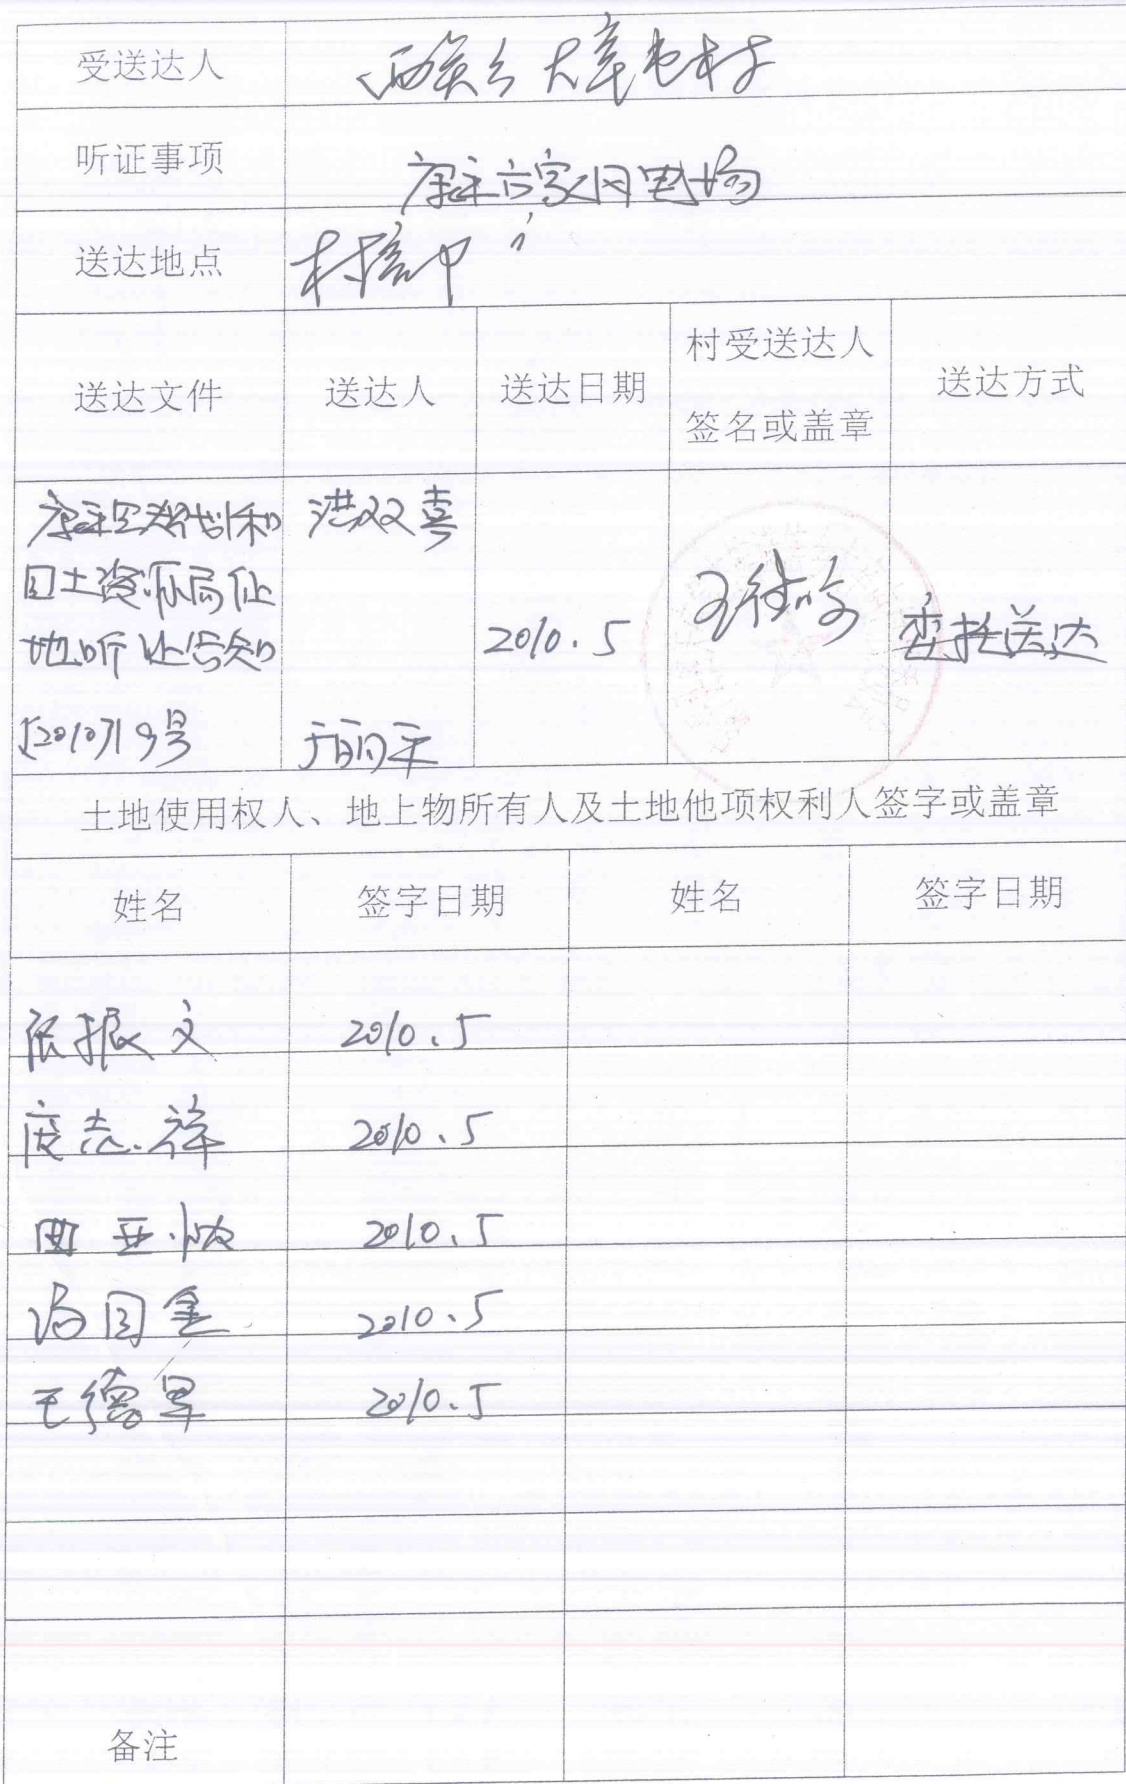 受送达人
大辛屯村
听证事项
康平 家 风电场
送达地点
村 中
送达文件 送达人 送达日期 村受送达人 签名或盖章 送达方式
康平 规划和 洪双喜
国土资源局征
地听证告知 2010.5 委托送达
[2010]19号 于丽
土地使用权人、地上物所有人及土地他项权利人签字或盖章
姓名 签字日期 姓名 签字日期
张振文 2010.5
庞志祥 2010.5
曲亚 2010.5
冯国金 2010.5
王德 2010.5
备注